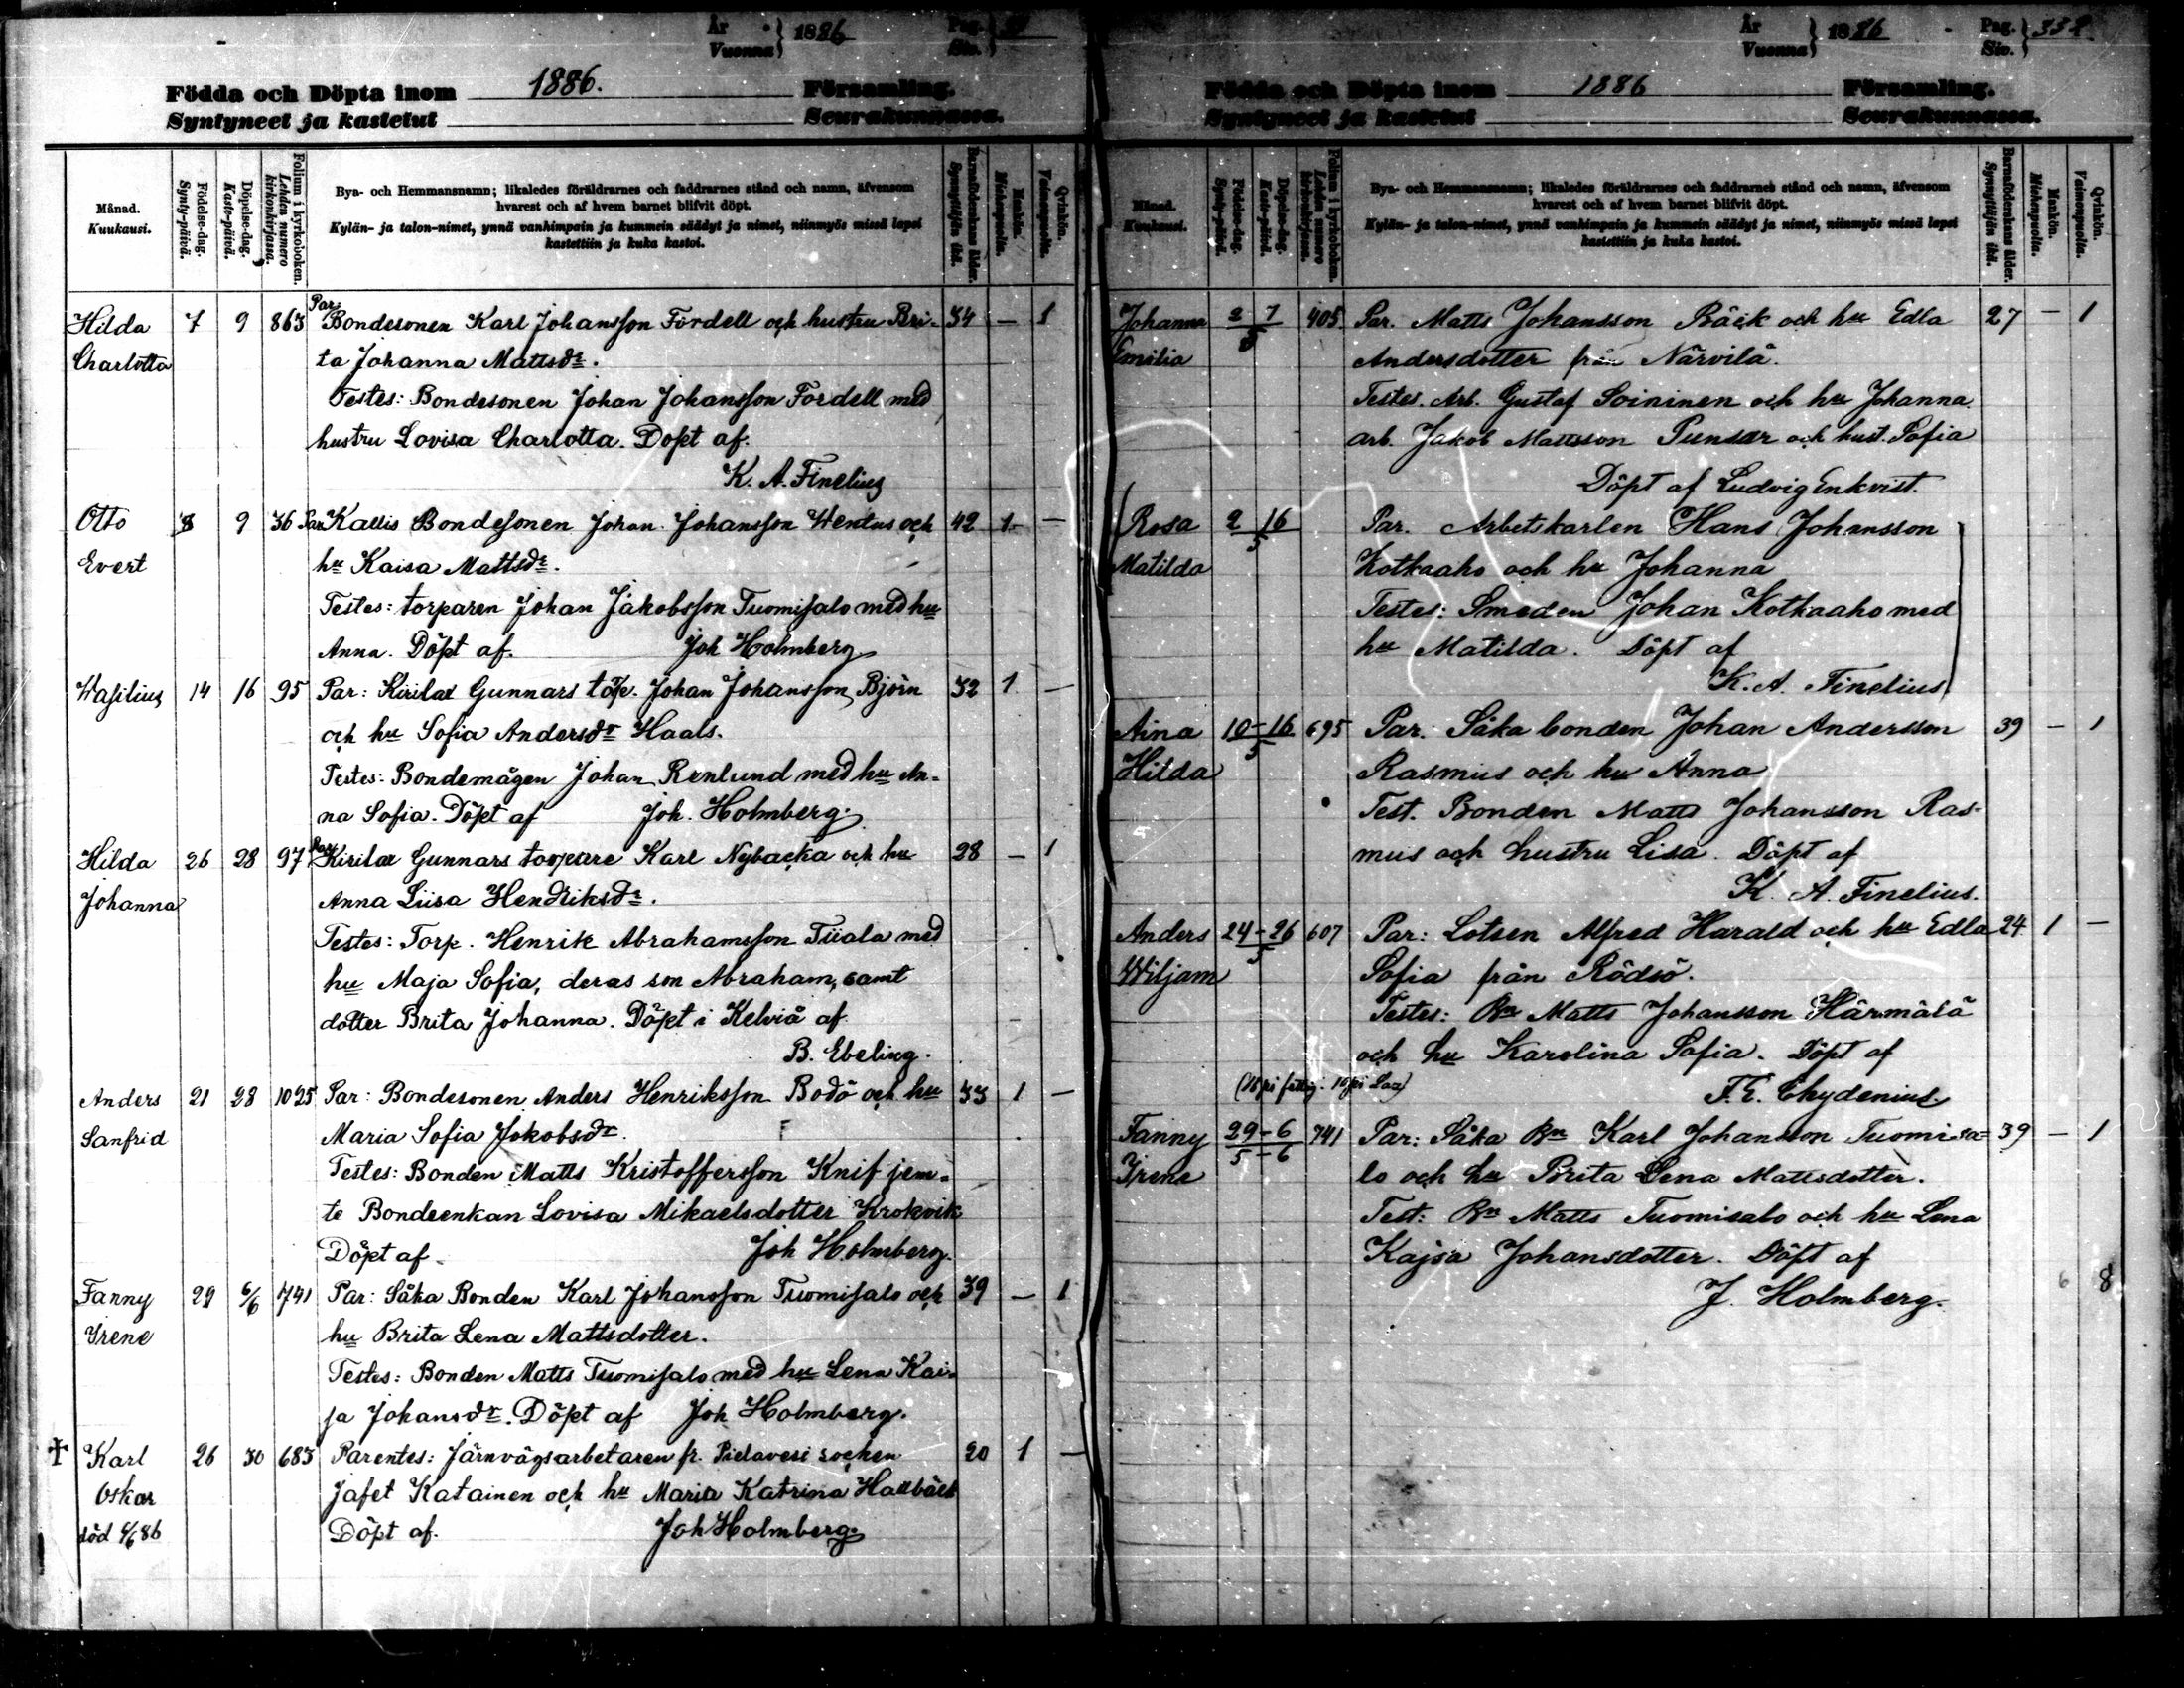 År
Vuonna } 1886
Pag.
Siv. }
Födda och Döpta inom 1886. Församling.
Syntyneet ja kastetut Seurakunnassa.
Månad.
Kuukausi.
Födelse-dag.
Synty-päivä.
Döpelse-dag.
Kaste-päivä.
Folium i kyrkoboken.
Lehden numero
kirkonkirjassa.
Bya- och Hemmansnamn; likaledes föräldrarnes och faddrarnes stånd och namn, äfvensom
hvarest och af hvem barnet blifvit döpt.
Kylän- ja talon-nimet, ynnä vanhimpain ja kummein säädyt ja nimet, niinmyös missä lapsi
kastettiin ja kuka kastoi.
Barnaföderskans ålder.
Synnyttäjän ikä.
Mankön.
Miehenpuolta.
Qvinkön.
Vaimonpuolta.
Par:
Hilda 7 9 863 Bondesonen Karl Johansson Fordell och hustru Bri- 34 — 1
Charlotta ta Johanna Mattsdr.
Testes: Bondesonen Johan Johansson Fordell med
hustru Lovisa Charlotta. Döpt af.
K. A. Finelius
Otto 8 9 36 Par Kallis Bondesonen Johan Johansson Wentus och 42 1 —
Evert hu Kaisa Mattsdr.
Testes: torparen Johan Jakobsson Tuomisalo med hu
Anna. Döpt af. Joh Holmberg
Wasilius 14 16 95 Par: Kirilax Gunnars torp. Johan Johansson Björn 32 1 —
och hu Sofia Andersdr Haals.
Testes: Bondemågen Johan Renlund med hu An-
na Sofia. Döpt af Joh. Holmberg.
Hilda 26 28 97 Par Kirilax Gunnars torpare Karl Nybacka och hu 28 — 1
Johanna Anna Liisa Hendriksdr.
Testes: Torp. Henrik Abrahamsson Tiiala med
hu Maja Sofia, deras son Abraham, samt
dotter Brita Johanna. Döpt i Kelviå af
B. Ebeling.
Anders 21 28 1025 Par: Bondesonen Anders Henriksson Bodö och hu 33 1 —
Sanfrid Maria Sofia Jakobsdr.
Testes: Bonden Matts Kristoffersson Knif jem-
te Bondeenkan Lovisa Mikaelsdotter Krokvik
Döpt af Joh Holmberg.
Fanny 29 6/6 741 Par: Såka Bonden Karl Johansson Tuomisalo och 39 — 1
Irene hu Brita Lena Mattsdotter.
Testes: Bonden Matts Tuomisalo med hu Lena Kai-
sa Johansdr. Döpt af Joh Holmberg.
† Karl 26 30 683 Parentes: Järnvägsarbetaren fr. Pielavesi socken 20 1 —
Oskar Jafet Katainen och hu Maria Katrina Hallbäck
död 6/6 86 Döpt af. Joh Holmberg.
År
Vuonna } 1886
Pag.
Siv. } 338
Födda och Döpta inom 1886 Församling.
Syntyneet ja kastetut Seurakunnassa.
Månad.
Kuukausi.
Födelse-dag.
Synty-päivä.
Döpelse-dag.
Kaste-päivä.
Folium i kyrkoboken.
Lehden numero
kirkonkirjassa.
Bya- och Hemmansnamn; likaledes föräldrarnes och faddrarnes stånd och namn, äfvensom
hvarest och af hvem barnet blifvit döpt.
Kylän- ja talon-nimet, ynnä vanhimpain ja kummein säädyt ja nimet, niinmyös missä lapsi
kastettiin ja kuka kastoi.
Barnaföderskans ålder.
Synnyttäjän ikä.
Mankön.
Miehenpuolta.
Qvinkön.
Vaimonpuolta.
Johanna 2 7 405 Par. Matts Johansson Bäck och hu Edla 27 — 1
Emilia 5 Andersdotter från Närvilä.
Testes. Arb. Gustaf Soininen och hu Johanna.
arb. Jakob Mattsson Punsar och hust. Sofia
Döpt af Ludvig Enkvist.
Rosa 2 16 Par. Arbetskarlen Hans Johansson
Matilda 5 Kotkaaho och hu Johanna
Testes: Smeden Johan Kotkaaho med
hu Matilda. Döpt af
K. A. Finelius
Aina 10-16 695 Par. Såka bonden Johan Andersson 39 — 1
Hilda 5 Rasmus och hu Anna
Test. Bonden Matts Johansson Ras-
mus och hustru Lisa. Döpt af
K. A. Finelius.
Anders 24-26 607 Par: Lotsen Alfred Harald och hu Edla 24 1 —
Wiljam 5 Sofia från Rödsö.
Testes: Bn Matts Johansson Härmälä
och hu Karolina Sofia. Döpt af
F. E. Chydenius.
Fanny 29-6 741 Par: Såka Bn Karl Johansson Tuomisa- 39 — 1
Irene 5-6 lo och hu Brita Lena Mattsdotter.
Test: Bn Matts Tuomisalo och hu Lena
Kajsa Johansdotter. Döpt af
J. Holmberg. 6 8